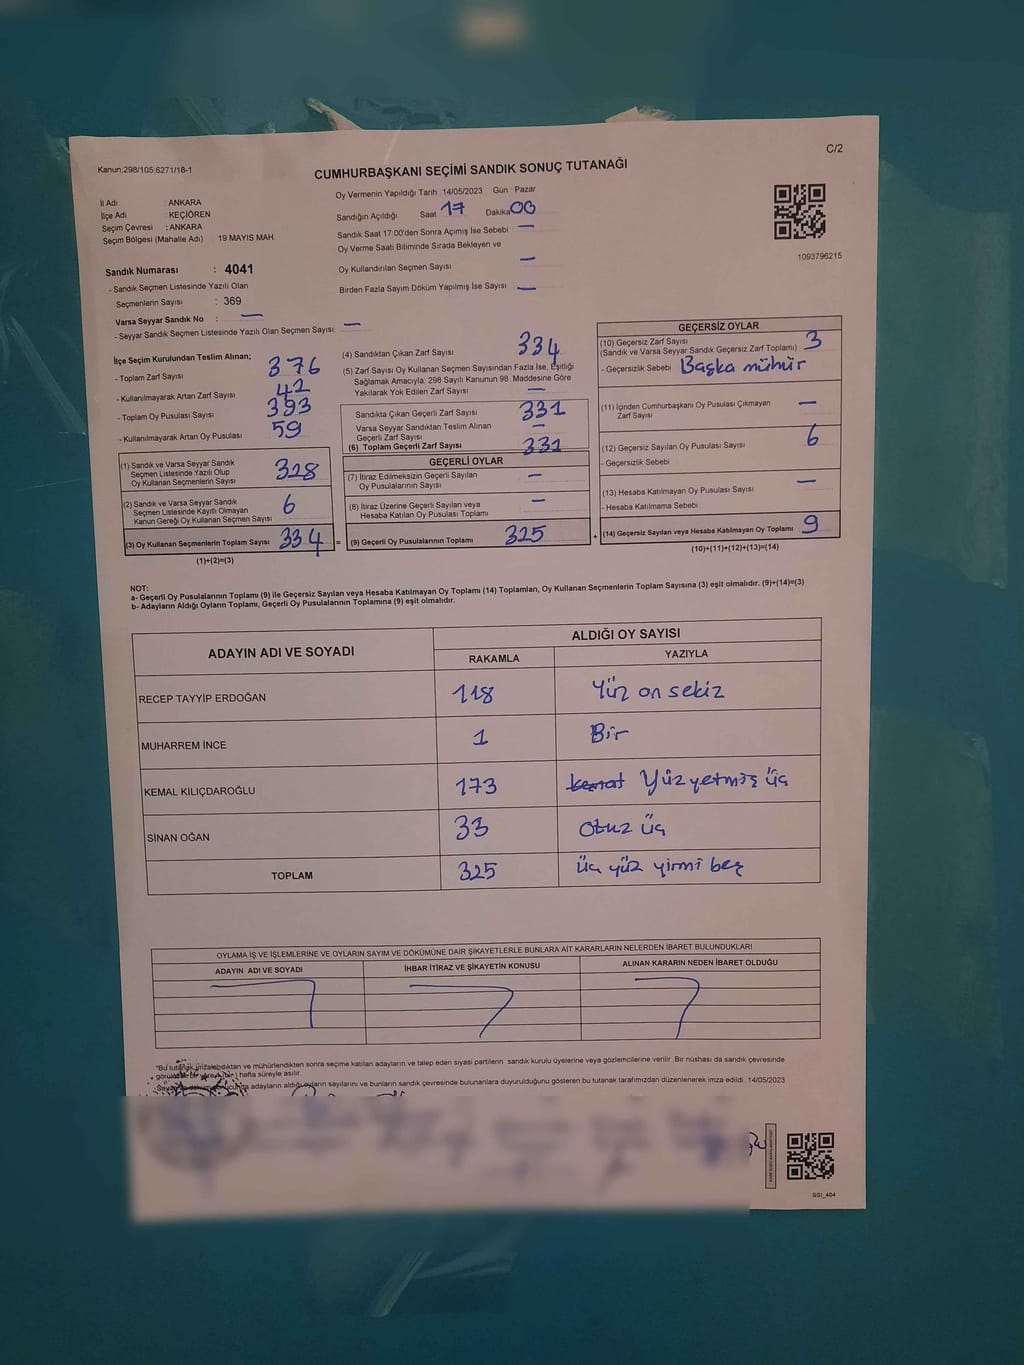 Kanun:298/105;6271/18-1
C/2
CUMHURBAŞKANI SEÇİMİ SANDIK SONUÇ TUTANAĞI
İl Adı : ANKARA
İlçe Adı : KEÇİÖREN
Seçim Çevresi : ANKARA
Seçim Bölgesi (Mahalle Adı) 19 MAYIS MAH.
Sandık Numarası : 4041
- Sandık Seçmen Listesinde Yazılı Olan
Seçmenlerin Sayısı : 369
Varsa Seyyar Sandık No : —
- Seyyar Sandık Seçmen Listesinde Yazılı Olan Seçmen Sayısı: —
Oy Vermenin Yapıldığı Tarih :14/05/2023 Gün : Pazar
Sandığın Açıldığı Saat 17 Dakika 00
Sandık Saat 17:00'den Sonra Açmış İse Sebebi : —
Oy Verme Saati Bitiminde Sırada Bekleyen ve
Oy Kullandırılan Seçmen Sayısı —
Birden Fazla Sayım Döküm Yapılmış İse Sayısı —
1093796215
İlçe Seçim Kurulundan Teslim Alınan;
- Toplam Zarf Sayısı 376
- Kullanılmayarak Artan Zarf Sayısı 42
- Toplam Oy Pusulası Sayısı 393
- Kullanılmayarak Artan Oy Pusulası 59
(1) Sandık ve Varsa Seyyar Sandık
Seçmen Listesinde Yazılı Olup
Oy Kullanan Seçmenlerin Sayısı 328
(2) Sandık ve Varsa Seyyar Sandık
Seçmen Listesinde Kayıtlı Olmayan
Kanun Gereği Oy Kullanan Seçmen Sayısı 6
(3) Oy Kullanan Seçmenlerin Toplam Sayısı 334 =
(1)+(2)=(3)
(4) Sandıktan Çıkan Zarf Sayısı 334
(5) Zarf Sayısı Oy Kullanan Seçmen Sayısından Fazla İse, Eşitliği
Sağlamak Amacıyla, 298 Sayılı Kanunun 98. Maddesine Göre
Yakılarak Yok Edilen Zarf Sayısı —
Sandıkta Çıkan Geçerli Zarf Sayısı 331
Varsa Seyyar Sandıktan Teslim Alınan
Geçerli Zarf Sayısı —
(6) Toplam Geçerli Zarf Sayısı 331
GEÇERLİ OYLAR
(7) İtiraz Edilmeksizin Geçerli Sayılan
Oy Pusulalarının Sayısı —
(8) İtiraz Üzerine Geçerli Sayılan veya
Hesaba Katılan Oy Pusulası Toplamı —
(9) Geçerli Oy Pusulalarının Toplamı 325 +
GEÇERSİZ OYLAR
(10) Geçersiz Zarf Sayısı 3
(Sandık ve Varsa Seyyar Sandık Geçersiz Zarf Toplamı)
- Geçersizlik Sebebi Başka mühür
(11) İçinden Cumhurbaşkanı Oy Pusulası Çıkmayan
Zarf Sayısı —
(12) Geçersiz Sayılan Oy Pusulası Sayısı 6
- Geçersizlik Sebebi
(13) Hesaba Katılmayan Oy Pusulası Sayısı —
- Hesaba Katılmama Sebebi
(14) Geçersiz Sayılan veya Hesaba Katılmayan Oy Toplamı 9
(10)+(11)+(12)+(13)=(14)
NOT:
a- Geçerli Oy Pusulalarının Toplamı (9) ile Geçersiz Sayılan veya Hesaba Katılmayan Oy Toplamı (14) Toplamları, Oy Kullanan Seçmenlerin Toplam Sayısına (3) eşit olmalıdır. (9)+(14)=(3)
b- Adayların Aldığı Oyların Toplamı, Geçerli Oy Pusulalarının Toplamına (9) eşit olmalıdır.
ADAYIN ADI VE SOYADI
ALDIĞI OY SAYISI
RAKAMLA YAZIYLA
RECEP TAYYİP ERDOĞAN 118 Yüz on sekiz
MUHARREM İNCE 1 Bir
KEMAL KILIÇDAROĞLU 173 Yüz yetmiş üç
SİNAN OĞAN 33 Otuz üç
TOPLAM 325 üç yüz yirmi beş
OYLAMA İŞ VE İŞLEMLERİNE VE OYLARIN SAYIM VE DÖKÜMÜNE DAİR ŞİKAYETLERLE BUNLARA AİT KARARLARIN NELERDEN İBARET BULUNDUKLARI
ADAYIN ADI VE SOYADI İHBAR İTİRAZ VE ŞİKAYETİN KONUSU ALINAN KARARIN NEDEN İBARET OLDUĞU
"Bu tutanak imzalandıktan ve mühürlendikten sonra seçime katılan adayların ve talep eden siyasi partilerin sandık kurulu üyelerine veya gözlemcilerine verilir. Bir nüshası da sandık çevresinde
hafta süreyle asılır.
adayların aldığı oyların sayılarını ve bunların sandık çevresinde bulunanlara duyurulduğunu gösteren bu tutanak tarafımızdan düzenlenerek imza edildi. 14/05/2023
SSI_404